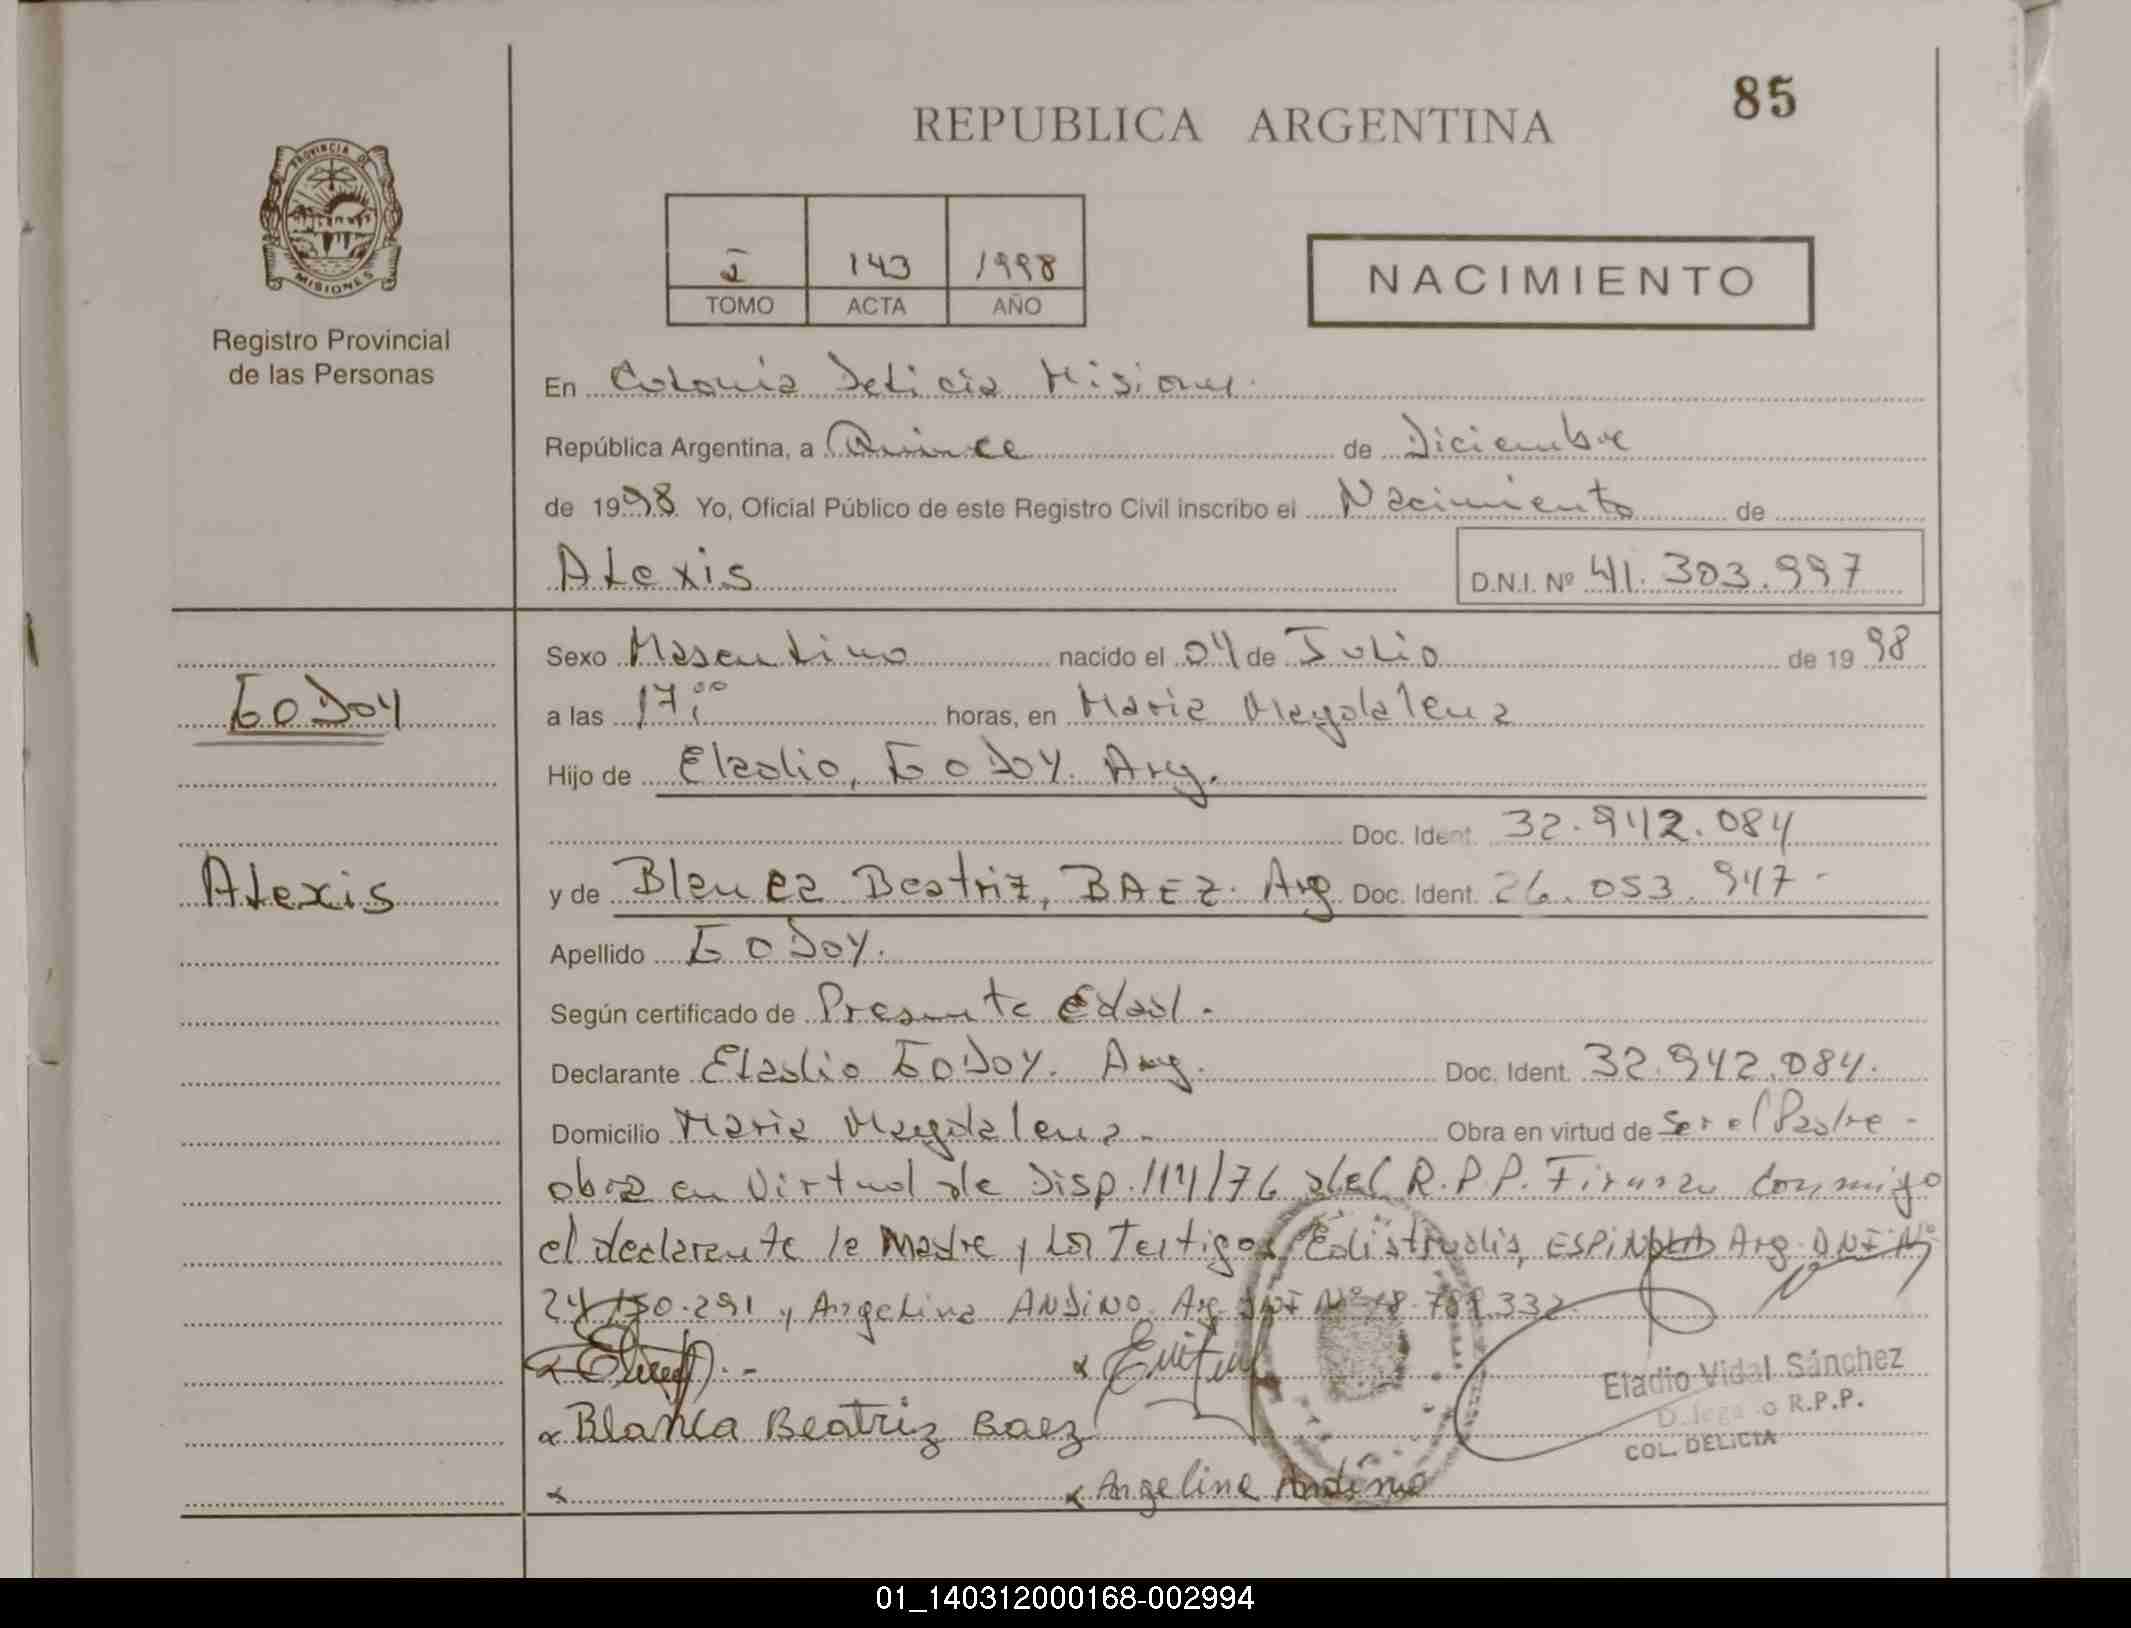 85
REPUBLICA ARGENTINA
PROVINCIA DE
MISIONES
Registro Provincial
de las Personas
I 143 1998
TOMO ACTA AÑO
NACIMIENTO
En Colonia Delicia Misiones.
República Argentina, a Quince de Diciembre
de 1998 Yo, Oficial Público de este Registro Civil inscribo el Nacimiento de
Alexis D.N.I. Nº 41.303.997
Sexo Masculino nacido el 04 de Julio de 1998
GODOY
a las 17:00 horas, en Maria Magdalena
Hijo de Eladio, GODOY. Arg.
Doc. Ident. 32.942.084
Alexis
y de Blanca Beatriz, BAEZ. Arg Doc. Ident. 26.053.947-
Apellido GODOY.
Según certificado de Presunta Edad.-
Declarante Eladio GODOY. Arg. Doc. Ident. 32.942.084.
Domicilio Maria Magdalena.- Obra en virtud de Ser el Padre-
obra en Virtud de Disp. 114/76 del R.P.P. Firman Conmigo
el declarante la Madre y Los Testigos ESPINOLA Arg. DNI Nº
24.150.291 y Angelina ANDINO. Arg. DNI Nº 18.709.332.
Blanca Beatriz Baez
Angelina Andino
Eladio Vidal Sánchez
Delegado R.P.P.
COL. DELICIA
01_140312000168-002994